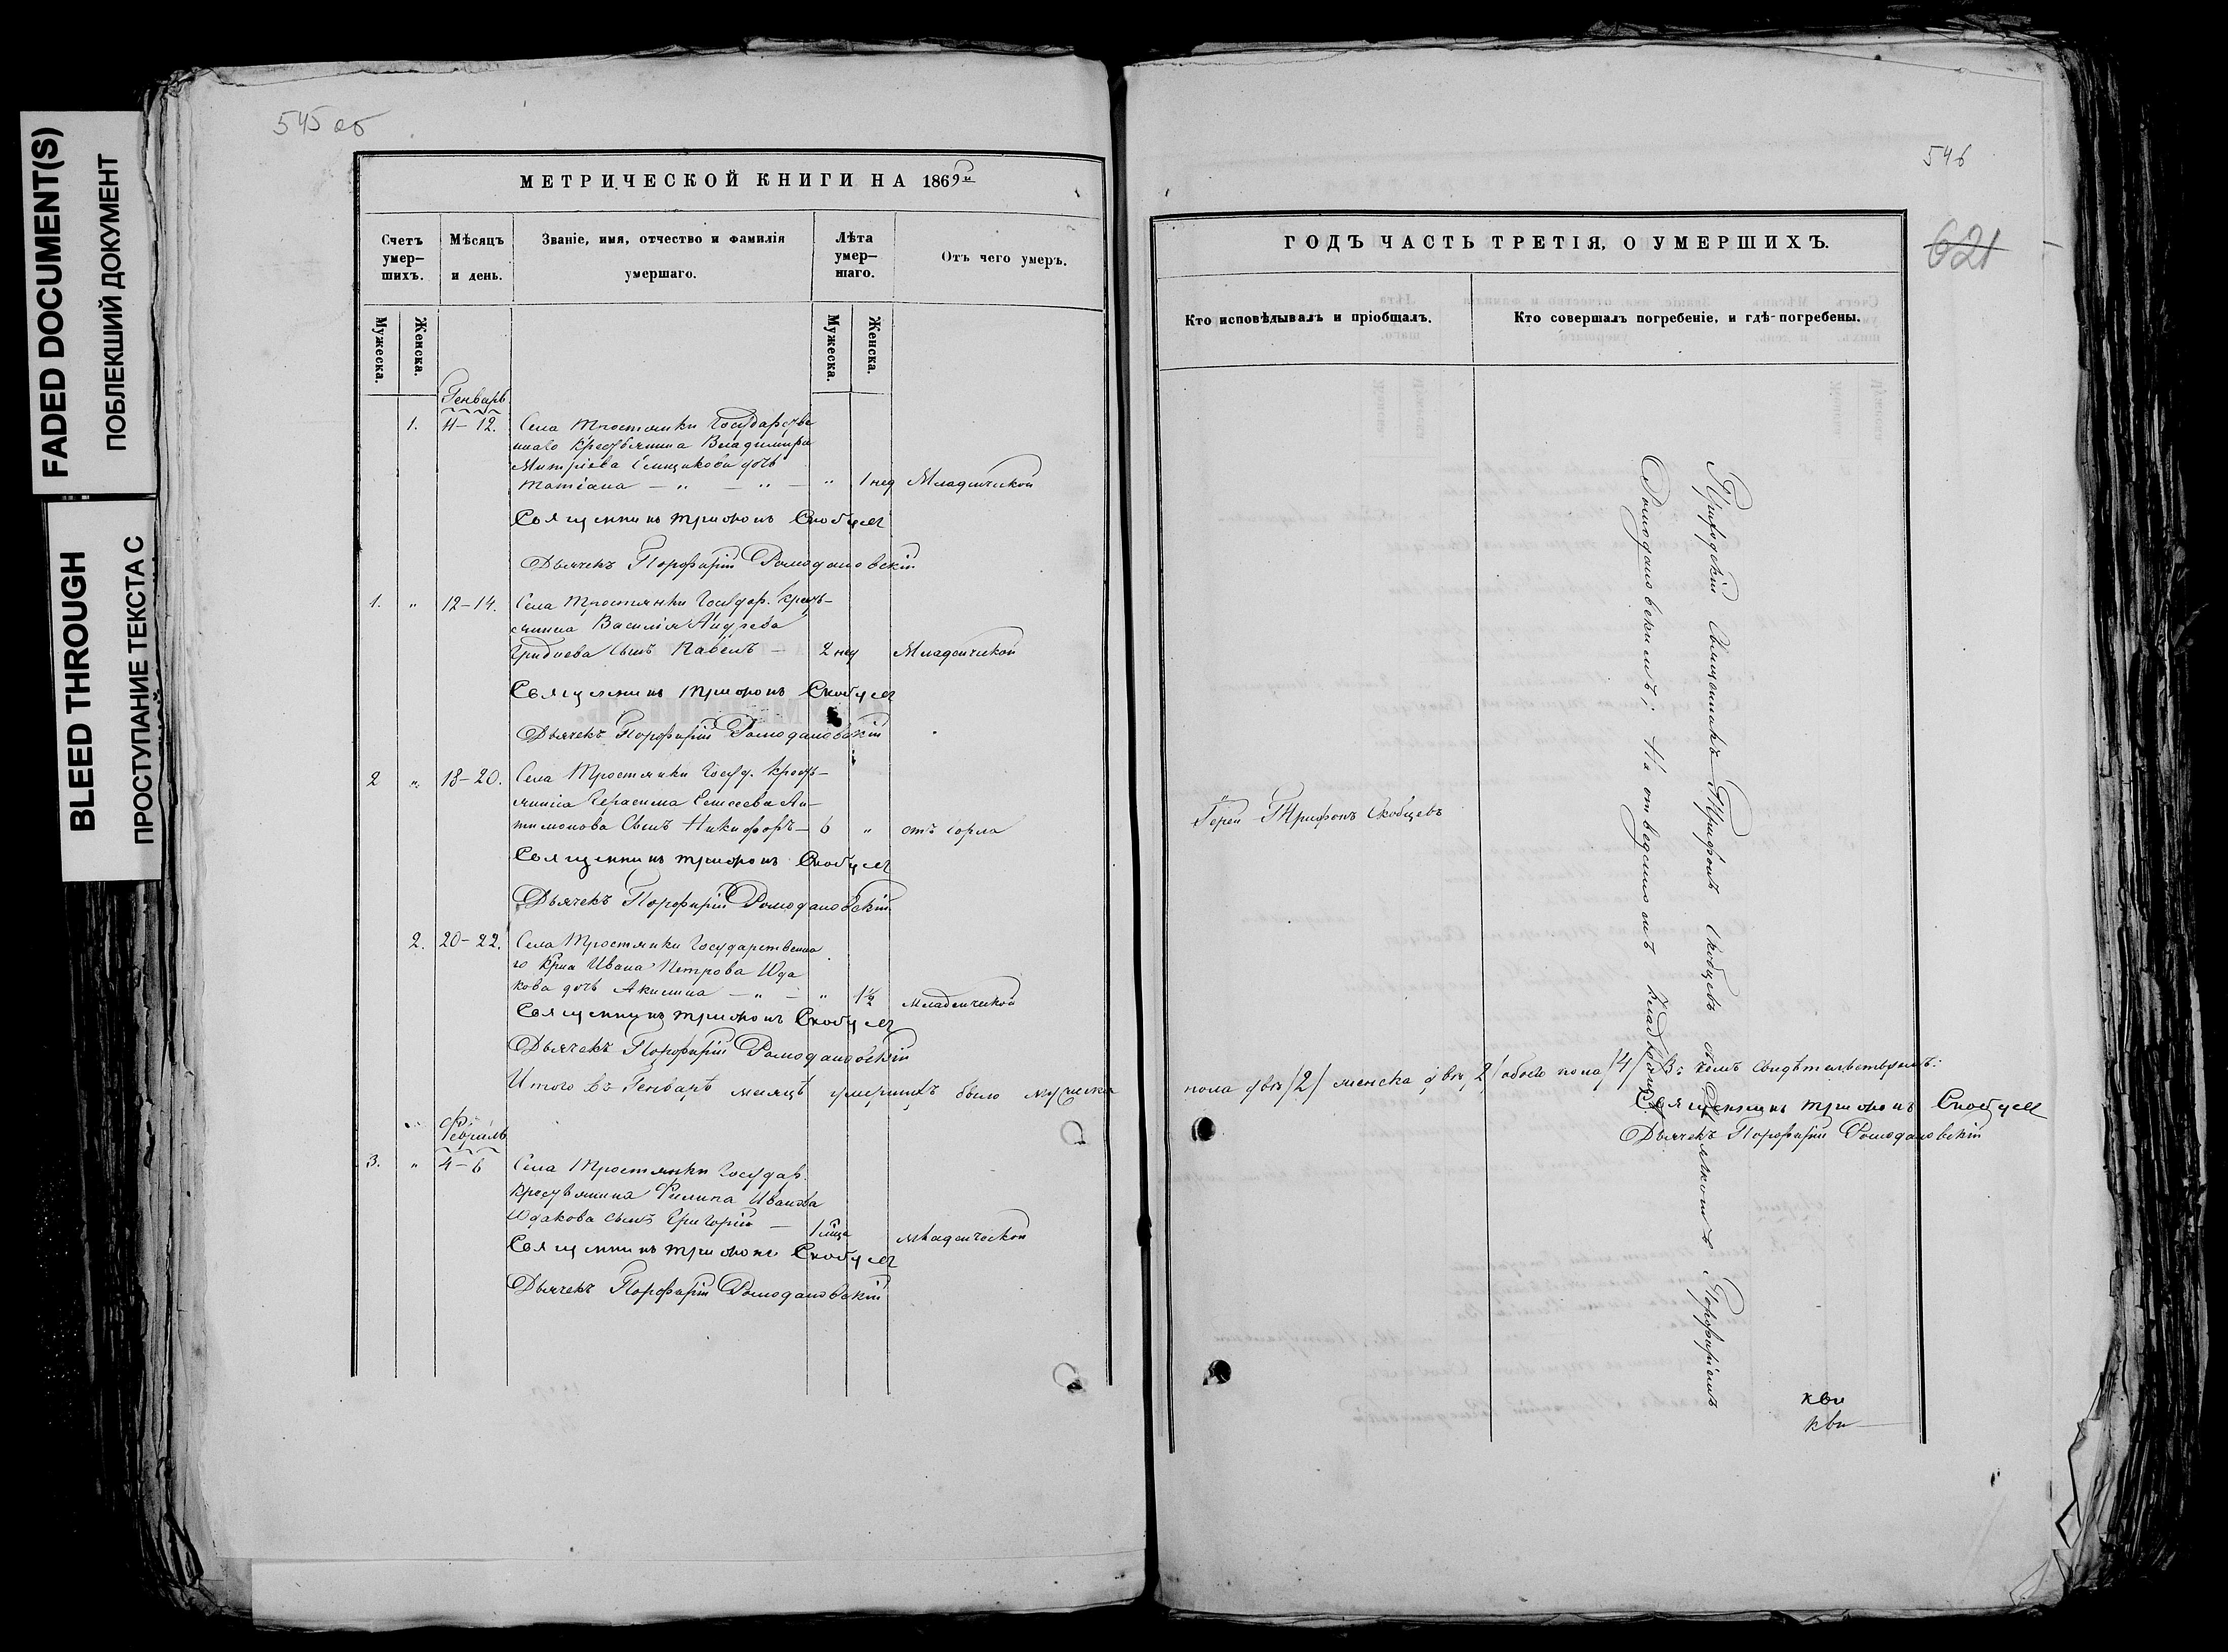 FADED DOCUMENT(S)
ПОБЛЕКШИЙ ДОКУМЕНТ
BLEED THROUGH
ПРОСТУПАНИЕ ТЕКСТА С
545 об
МЕТРИЧЕСКОЙ КНИГИ НА 1869й
Счетъ умер-шихъ.
Мѣсяцъ и день.
Званіе, имя, отчество и фамилія умершаго.
Лѣта умер-шаго.
Отъ чего умеръ.
Мужеска.
Женска.
Мужеска.
Женска.
Генварь
1. 11-12. Села Тростянки Государстве
ннаго Крестьянина Владимира
Митріева дочь
Татіана — " — " — " 1 нед Младенческой
Священникъ Трифонъ Скобцев
Дьячекъ Порфирій Ромодановскій
1. " 12-14. Села Тростянки Государ. Крест-
янина Василія Андрева
Гриднева Сынъ Павелъ — 2 нед Младенческой
Священникъ Трифонъ Скобцев
Дьячекъ Порфирій Ромодановскій
2 " 18-20. Села Тростянки Госуд. Крест-
янина Герасима Елисеева Ан-
тимонова Сынъ Никифоръ — 6 " отъ горла
Священникъ Трифонъ Скобцев
Дьячекъ Порфирій Ромодановскій
2. 20-22. Села Тростянки Государственна
го Крна Ивана Петрова Юда
кова дочь Акилина — " — " 1½ Младенческой
Священникъ Трифонъ Скобцев
Дьячекъ Порфирій Ромодановскій
Итого въ Генварѣ месяцѣ умершихъ было мужеска
Февраль
3. " 4-6 Села Тростянки Государ.
Крестьянина Филипа Иванова
Юдакова сынъ Григорій — 1 мца Младенческой
Священникъ Трифонъ Скобцев
Дьячекъ Порфирій Ромодановскій
546
621
ГОДЪ ЧАСТЬ ТРЕТІЯ, О УМЕРШИХЪ.
Кто исповѣдывалъ и пріобщалъ.
Кто совершалъ погребеніе, и гдѣ погребены.
Іерей Трифонъ Скобцевъ
Приходскій Священникъ Трифонъ Скобцевъ съ Дьячкомъ Порфиріемъ
Ромодановскимъ; На отведенномъ Кладбищѣ
пола два /2/ женска два /2/ обоего пола /4/ Въ чемъ свидѣтельствуемъ:
Священникъ Трифонъ Скобцев
Дьячекъ Порфирій Ромодановскій